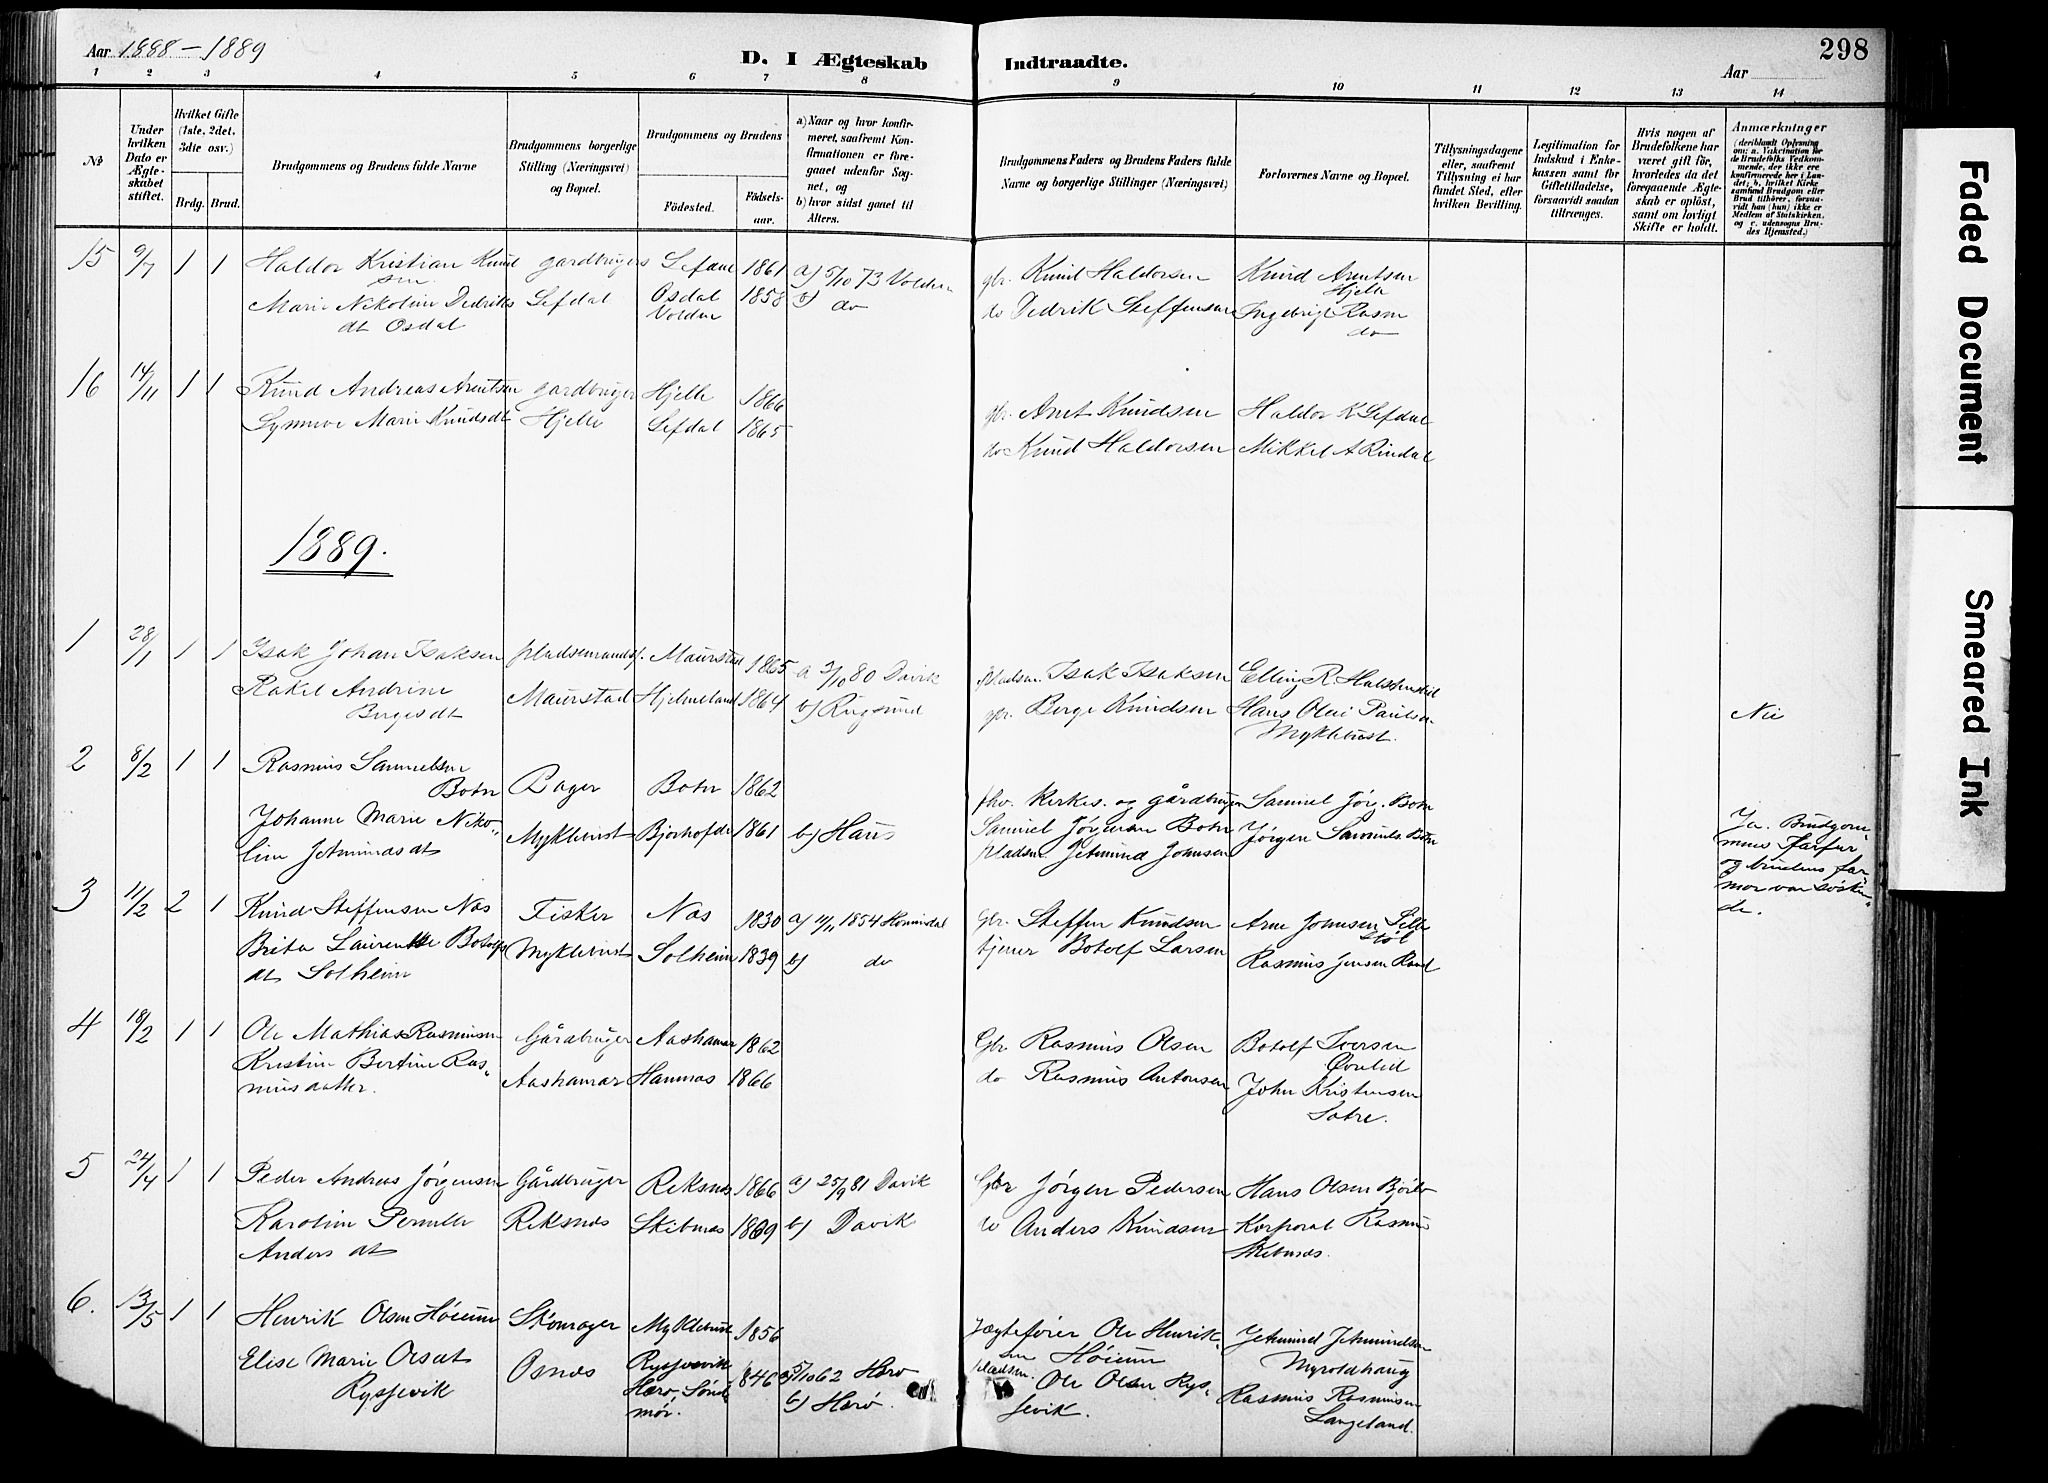 Aar 1888-1889
D. I Ægteskab
Indtraadte.
Aar
298
1 2 3 4 5 6 7 8 9 10 11 12 13 14
№
Under hvilken Dato er Ægteskabet stiftet.
Hvilket Gifte (1ste, 2det, 3die osv.)
Brdg. Brud.
Brudgommens og Brudens fulde Navne
Brudgommens borgerlige Stilling (Næringsvei) og Bopæl.
Brudgommens og Brudens
Fødested.
Fødselsaar.
a) Naar og hvor konfirmeret, saafremt Konfirmationen er foregaaet udenfor Sognet, og
b) hvor sidst gaaet til Alters.
Brudgommens Faders og Brudens Faders fulde Navne og borgerlige Stillinger (Næringsvei)
Forlovernes Navne og Bopæl.
Tillysningsdagene eller, saafremt Tillysning ei har fundet Sted, efter hvilken Bevilling.
Legitimation for Indskud i Enkekassen samt for Giftetilladelse, forsaavidt saadan tiltrænges.
Hvis nogen af Brudefolkene har været gift før, hvorledes da det foregaaende Ægteskab er opløst, samt om lovligt Skifte er holdt.
Anmærkninger
(deriblandt Oplysning om: a. Vakcination for de Brudefolks Vedkommende, der ikke ere konfirmerede her i Landet; b. hvilket Kirkesamfund Brudgom eller Brud tilhører, forsaavidt han (hun) ikke er Medlem af Statskirken, og c. udensogns Brudes Hjemsted.)
15 9/7 1 1 Haldor Kristian Knudsen gardbruger Lefdal 1861 a) 5/10 73 Volden gbr. Knud Haldorsen Knud Arentsen Hjelle
Marie Nikoline Dedriksdt Osdal Lefdal Osdal Volden 1858 b) do do Dedrik Steffensen Ingebrigt Rasm do
16 14/11 1 1 Knud Andreas Arentsen gardbruger Hjelle 1866 gbr. Arnt Knudsen Haldor K Lefdal
Synneve Marie Knudsdt Hjelle Lefdal 1865 do Knud Haldorsen Mikkel A Rindal
1889.
1 28/1 1 1 Isak Johan Isaksen pladsemandsf. Maurstad 1865 a 3/10 80 Davik pladsm. Isak Isaksen Elling R
Rakel Andrine Bergesdt Maurstad Hjelmeland 1864 b) Rugsund gbr. Berge Knudsen Hans Olai Paulsen Myklebust. Nei
2 8/2 1 1 Rasmus Samuelsen Botn Bager Botn 1862 fhv. Kirkes. og gårdbruger Samuel Jør. Botn
Johanne Marie Nikoline Jetmundsdt Myklebust Bjorhofde 1861 b) Haus Samuel Jørgensen Botn Jørgen Samuels Botn
pladsm. Jetmund Johnsen
Ja. Brudgommens farfar og brudens farmor var søskende.
3 11/2 2 1 Knud Steffensen Nos Fisker Nos 1830 a) 4/11 1854 Hornindal Gbr. Steffen Knudsen Arne Johnsen
Brita Laurentse Botolfsdt Solheim Myklebust Solheim 1839 b) do tjener Botolf Larsen Rasmus Jensen Rand
4 18/2 1 1 Ole Mathias Rasmussen Gårdbruger Aashamar 1862 Gbr Rasmus Olsen Botolf Iversen Øvrelid
Kristine Bertine Rasmusdatter. Aashamar Hamnæs 1866 do Rasmus Antonsen John Kristensen Sætre.
5 24/4 1 1 Peder Andreas Jørgensen Gårdbruger Reksnes 1866 a) 25/9 81 Davik Gbr Jørgen Pedersen Hans Olsen Bjørlo
Karoline Pernille Anders dt Reksnæs Skibnæs 1869 b) Davik do Anders Knudsen Korporal Rasmus Skibnæs.
6. 13/5 1 1 Henrik Olsen Høieum Skomager Myklebust 1856 Jægtefører Ole Henriksen Høieum Jetmund Jetmundsen Myroldhaug
Elise Marie Olsdt Rysjevik Osnæs Rysjevik Herø, Søndmør. 1846 a) 5/10 62 Herø pladsm. Ole Olsen Rysjevik. Rasmus Rasmussen Langeland.
b) Herø.
Faded Document
Smeared Ink